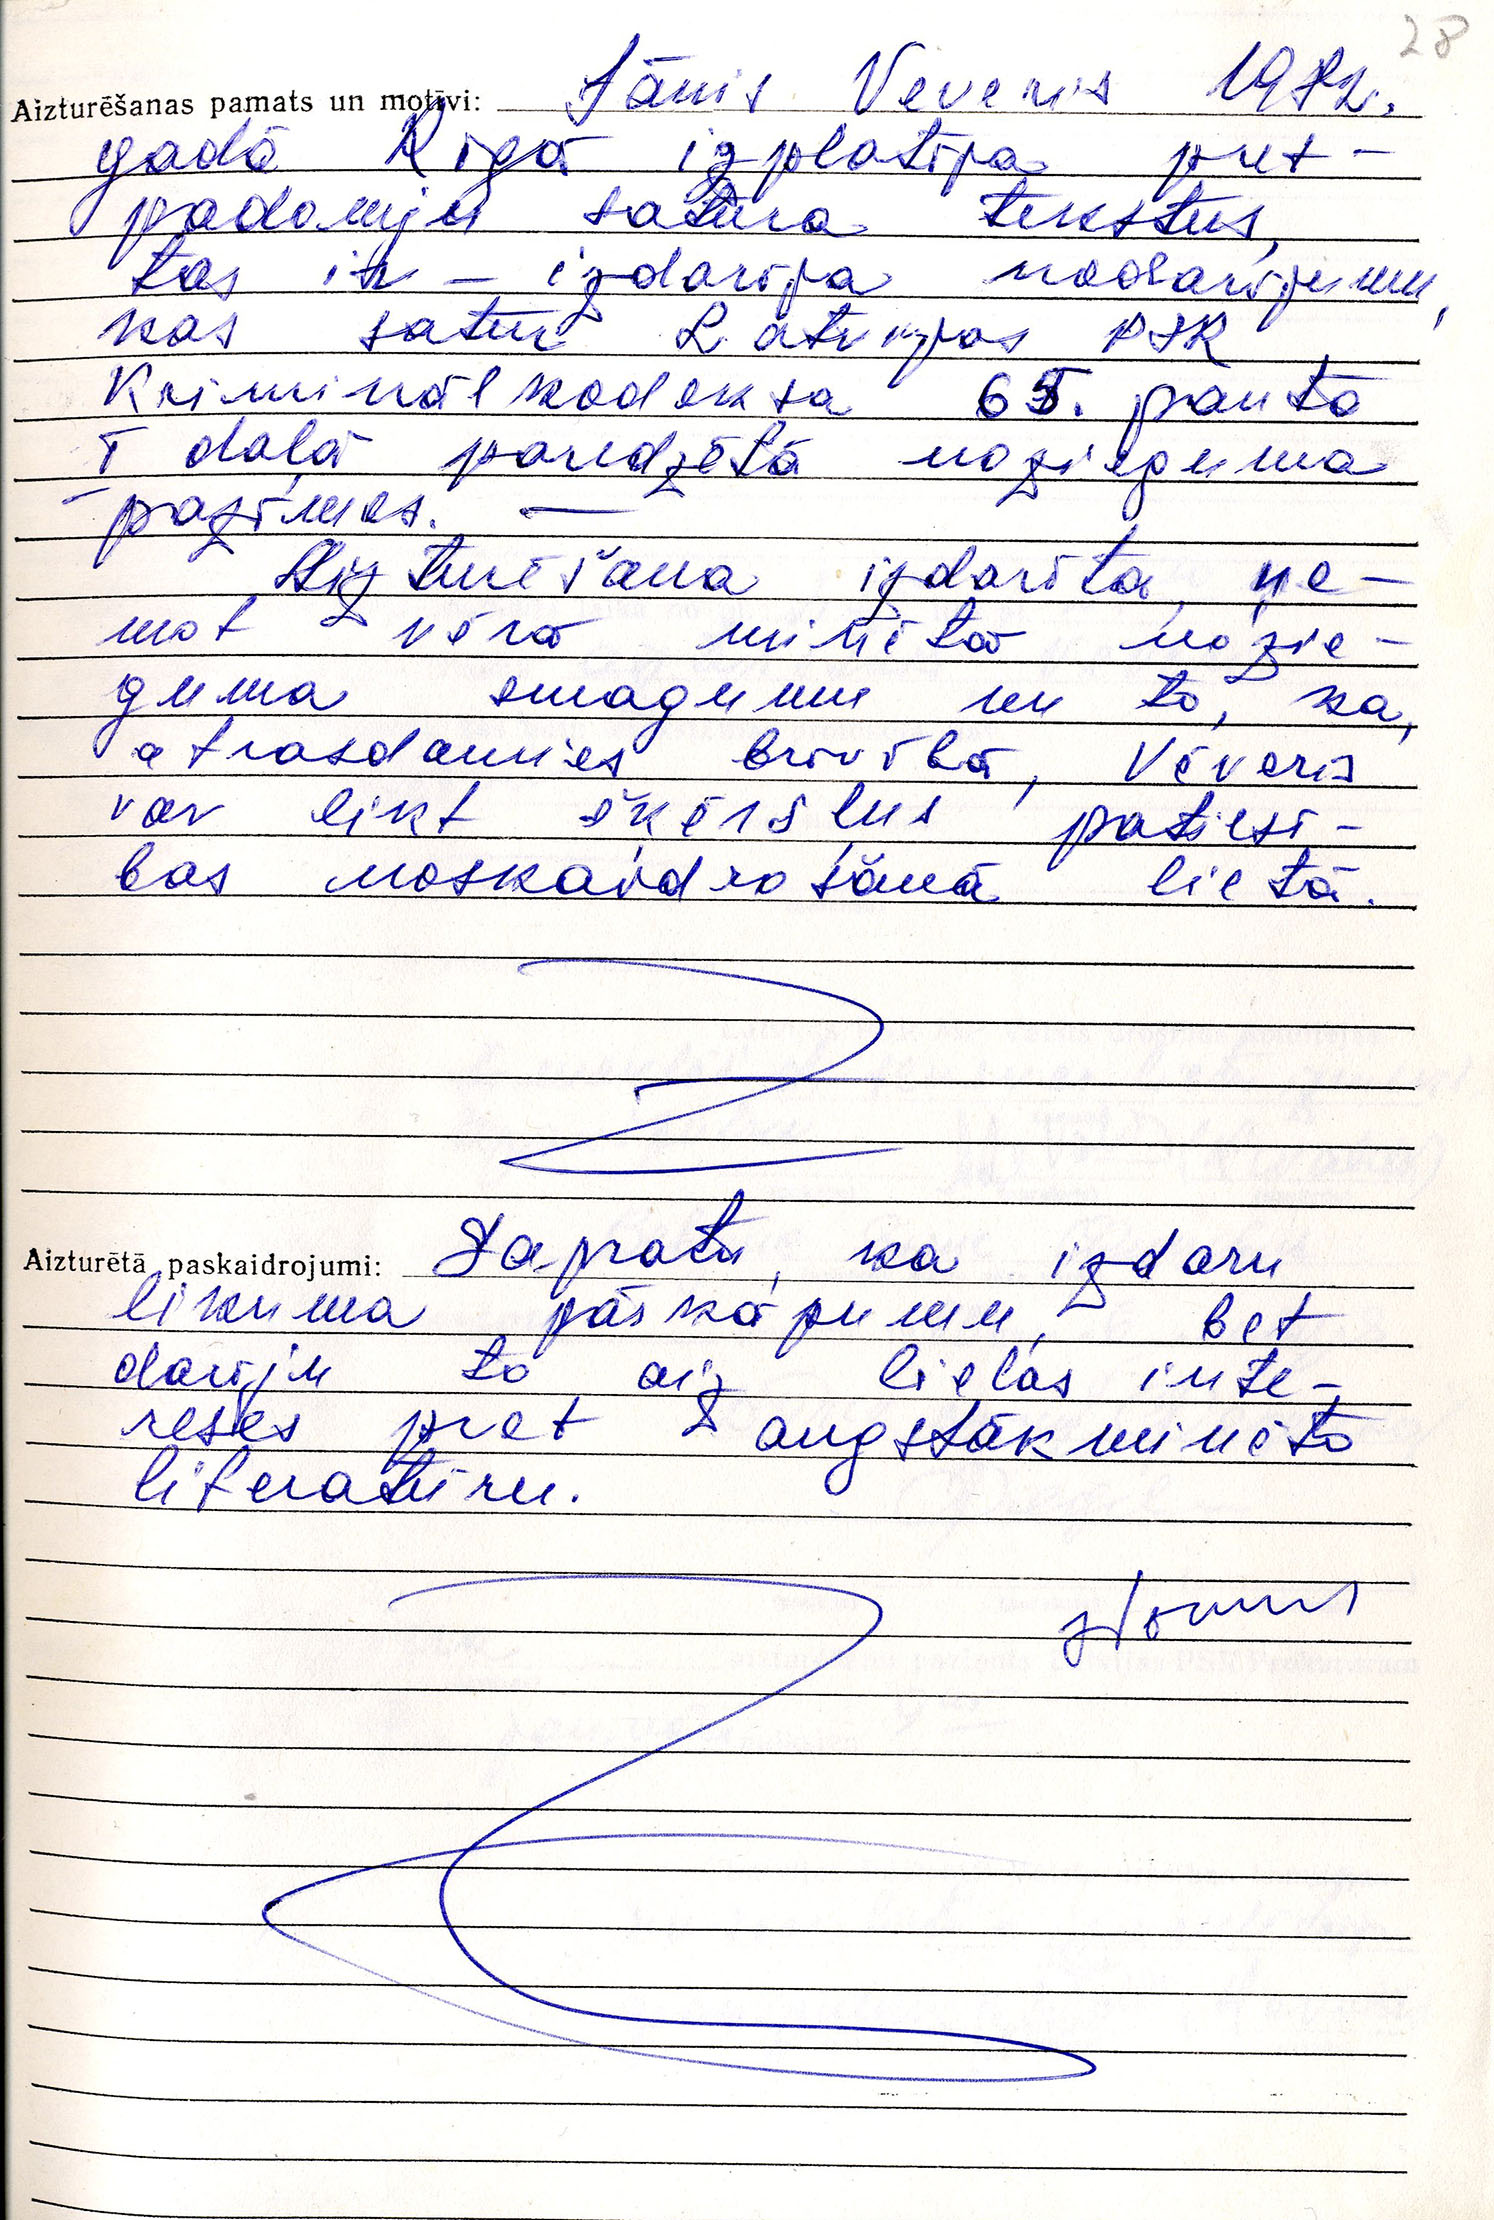 28
Aizturēšanas pamats un motīvi: Jānis Vēveris 1982.
gadā Rīgā izplatīja pret-
padomju satura tekstus,
tas ir – izdarīja nodarījumu,
kas satur Latvijas PSR
Kriminālkodeksa 65. panta
I daļā paredzētā nozieguma
pazīmes. —
Aizturēšana izdarīta, ņe-
mot vērā minētā nozie-
guma smagumu un to, ka,
atrazdamies brīvībā, Vēveris
var likt šķēršļus patiesī-
bas noskaidrošanā lietā.
Aizturētā paskaidrojumi: Sapratu, ka izdaru
likuma pārkāpumu, bet
darīju to aiz lielas inte-
reses pret augstākminēto
literatūru.